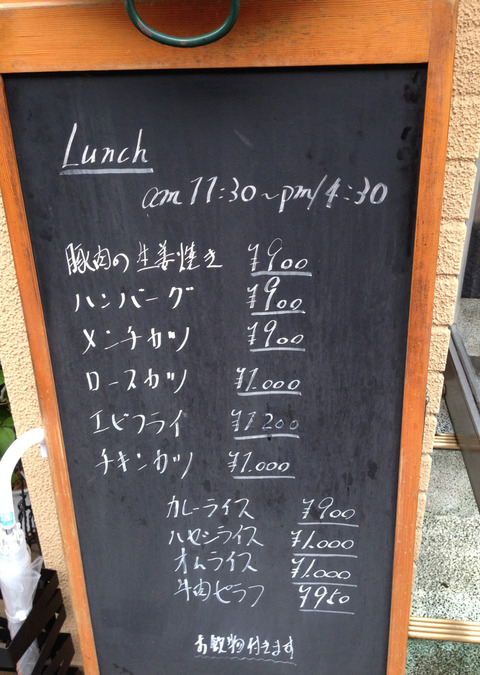 Lunch
am 11:30~pm 1:30
豚肉の生姜焼き ¥900
ハンバーグ ¥900
メンチカツ ¥900
ロースカツ ¥1.000
エビフライ ¥1200
チキンカツ ¥1.000
カレーライス ¥900
ハヤシライス ¥1.000
オムライス ¥1.000
牛肉ピラフ ¥950
お飲物付きます